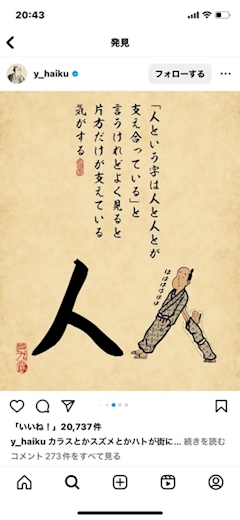 20:43
発見
y_haiku
フォローする
「人という字は人と人とが
支え合っている」と
言うけれどよく見ると
片方だけが支えている
気がする
ははははは
人
「いいね！」20,737件
y_haiku カラスとかスズメとかハトが街に... 続きを読む
コメント273件をすべて見る